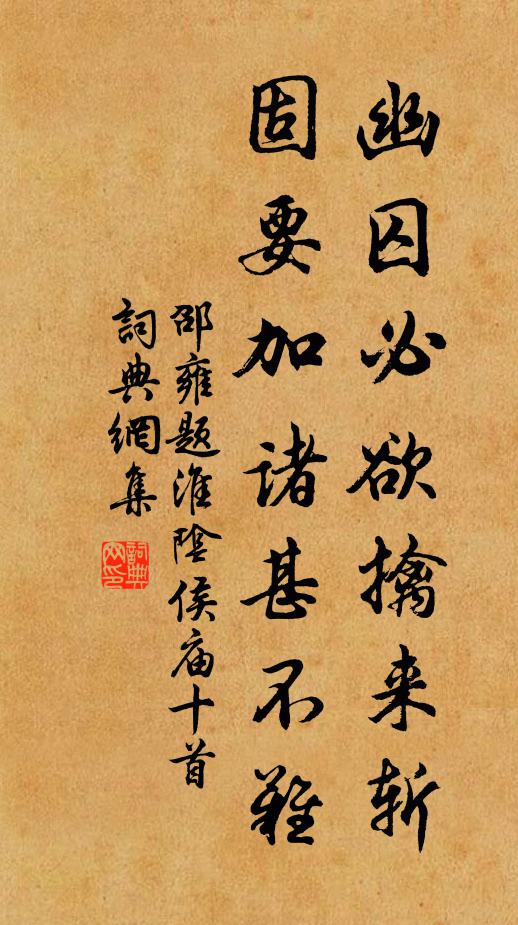 幽囚必欲擒来斩
固要加诸甚不難
邵雍题淮陰侯庙十首
詞典網集
詞典网印